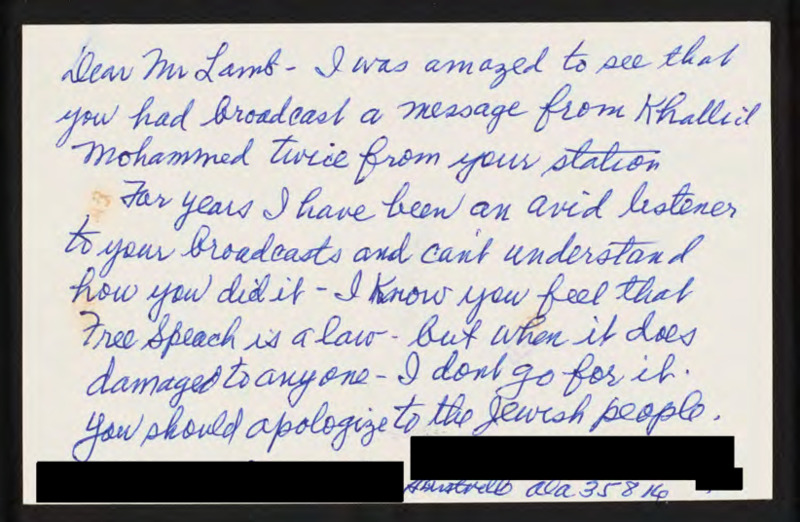 Dear Mr Lamb - I was amazed to see that
you had broadcast a message from Khallid
Mohammed twice from your station
For years I have been an avid listener
to your broadcasts and can't understand
how you did it - I know you feel that
Free Speach is a law - but when it does
damaged to anyone - I dont go for it.
You should apologize to the Jewish people.
ala 35816